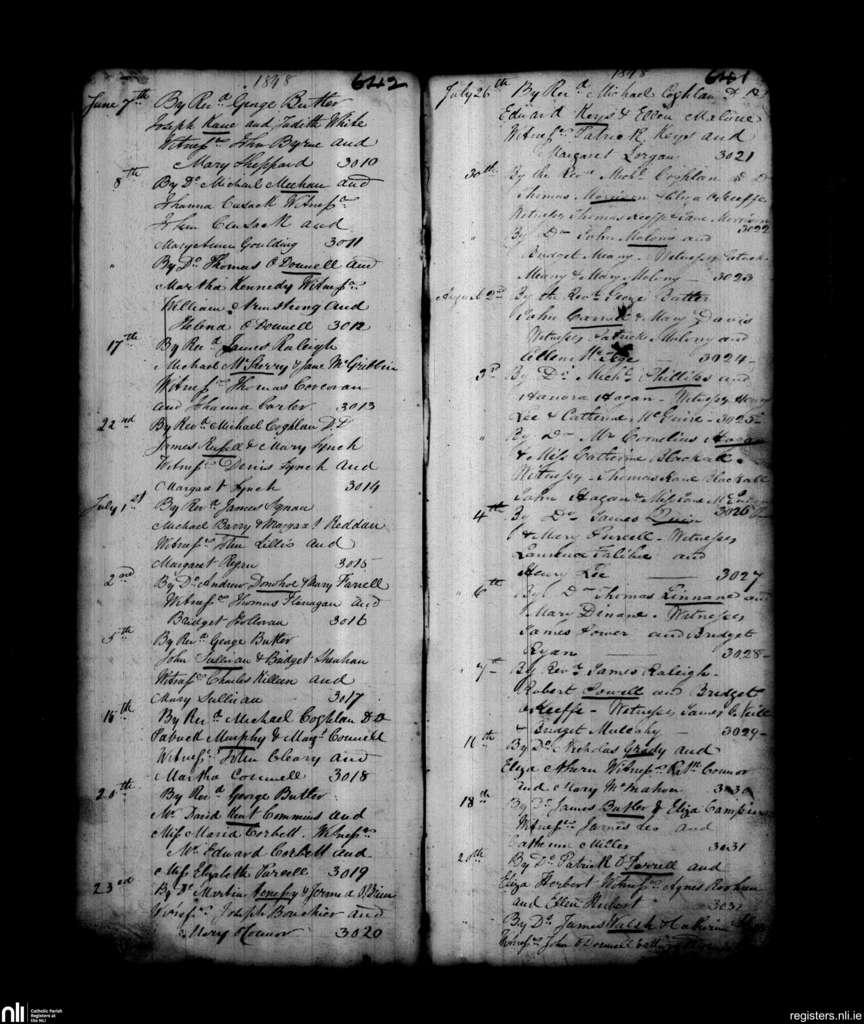 1848 642
June 7th By Revd. George Butler
Joseph Kane and Judith White
Witnesss. John Byrne and
Mary Sheppard 3010
8th By Do. Michael Meehan and
Johanna Cusack Witnesss.
John Cusack and
Mary Anne Goulding 3011
" By Do. Thomas O'Donnell and
Martha Kennedy Witnesss.
William Armstrong and
Helena O'Donnell 3012
17th By Revd. James Raleigh
Michael & Jane
Witnesss. Thomas Corcoran
and Johanna Carter 3013
22nd By Revd. Michael Coghlan D.D
James Russell & Mary Lynch
Witnesss. Denis Lynch and
Margaret Lynch 3014
July 1st By Revd. James
Michael Barry & Margaret Reddan
Witnesss. John Lillis and
Margaret 3015
2nd By Do. Andrew Donohoe & Mary Farrell
Witnesss. Thomas Flanagan and
Bridget Holloran 3016
5th By Revd. George Butler
John Sullivan & Bridget Sheehan
Witnesss. Charles Killeen and
Mary Sullivan 3017
By Revd. Michael Coghlan D.D
Patrick Murphy & Margt. Connell
Witnesss. John Cleary and
Martha Connell 3018
By Revd. George Butler
Mr. David Kent Commins and
Miss Maria Corbett. Witnesss.
Mr. Edward Corbett and
Miss Elizabeth Purcell 3019
23rd By Do. Martin &
Witnesss. Joseph Bouchier and
Mary O'Connor 3020
1848 641
July 26th By Revd. Michael Coghlan D.D
Edward Keys & Ellen Malone
Witnesss. Patrick Keys and
Margaret 3021
30th By the Revd. Michl. Coghlan D.D
Thomas Morrison & Eliza O'Keeffe
Witnesses Thomas Keeffe & Jane Morrison
3022
" By Do. John Malony and
Bridget Meany. Witnesses Patrick
Meany & Mary Molony 3023
August 2nd By the Revd. George Butler
John & Mary Davis
Witnesses Patrick Molony and
Ellen 3024
3d By Do. Michl. Phillips and
Hanora Hogan. Witnesses Henry
Lee & Catherine McGuire 3025
" By Do. Mr Cornelius Hogan
& Miss Catherine Blackall.
Witnesses Thomas Kane Blackall
John Hogan & Miss Jane
3026
4th By Do. James Quin
& Mary Purcell. Witnesses
Laurence and
Henry Lee 3027
" 6th By Do. Thomas Linnane and
Mary Dinane. Witnesses
James Power and Bridget
Ryan 3028
" 7th By Revd. James Raleigh.
Robert and Bridget
O'Keeffe. Witnesses James O'Neill
& Bridget Mulcahy 3029
By Do. Nicholas Grady and
Eliza Ahern Witnesss. Connor
and Mary McMahon 3030
18th By Do. James Butler & Eliza
Witnesss. James Lee and
Catherine Miller 3031
By Do. Patrick O'Farrell and
Eliza Herbert Witnesss. Agnes
and Ellen Herbert
By Do. James Walsh & Catherine
Witnesss. John O'Donnell
nli Catholic Parish
Registers at
the NLI
registers.nli.ie